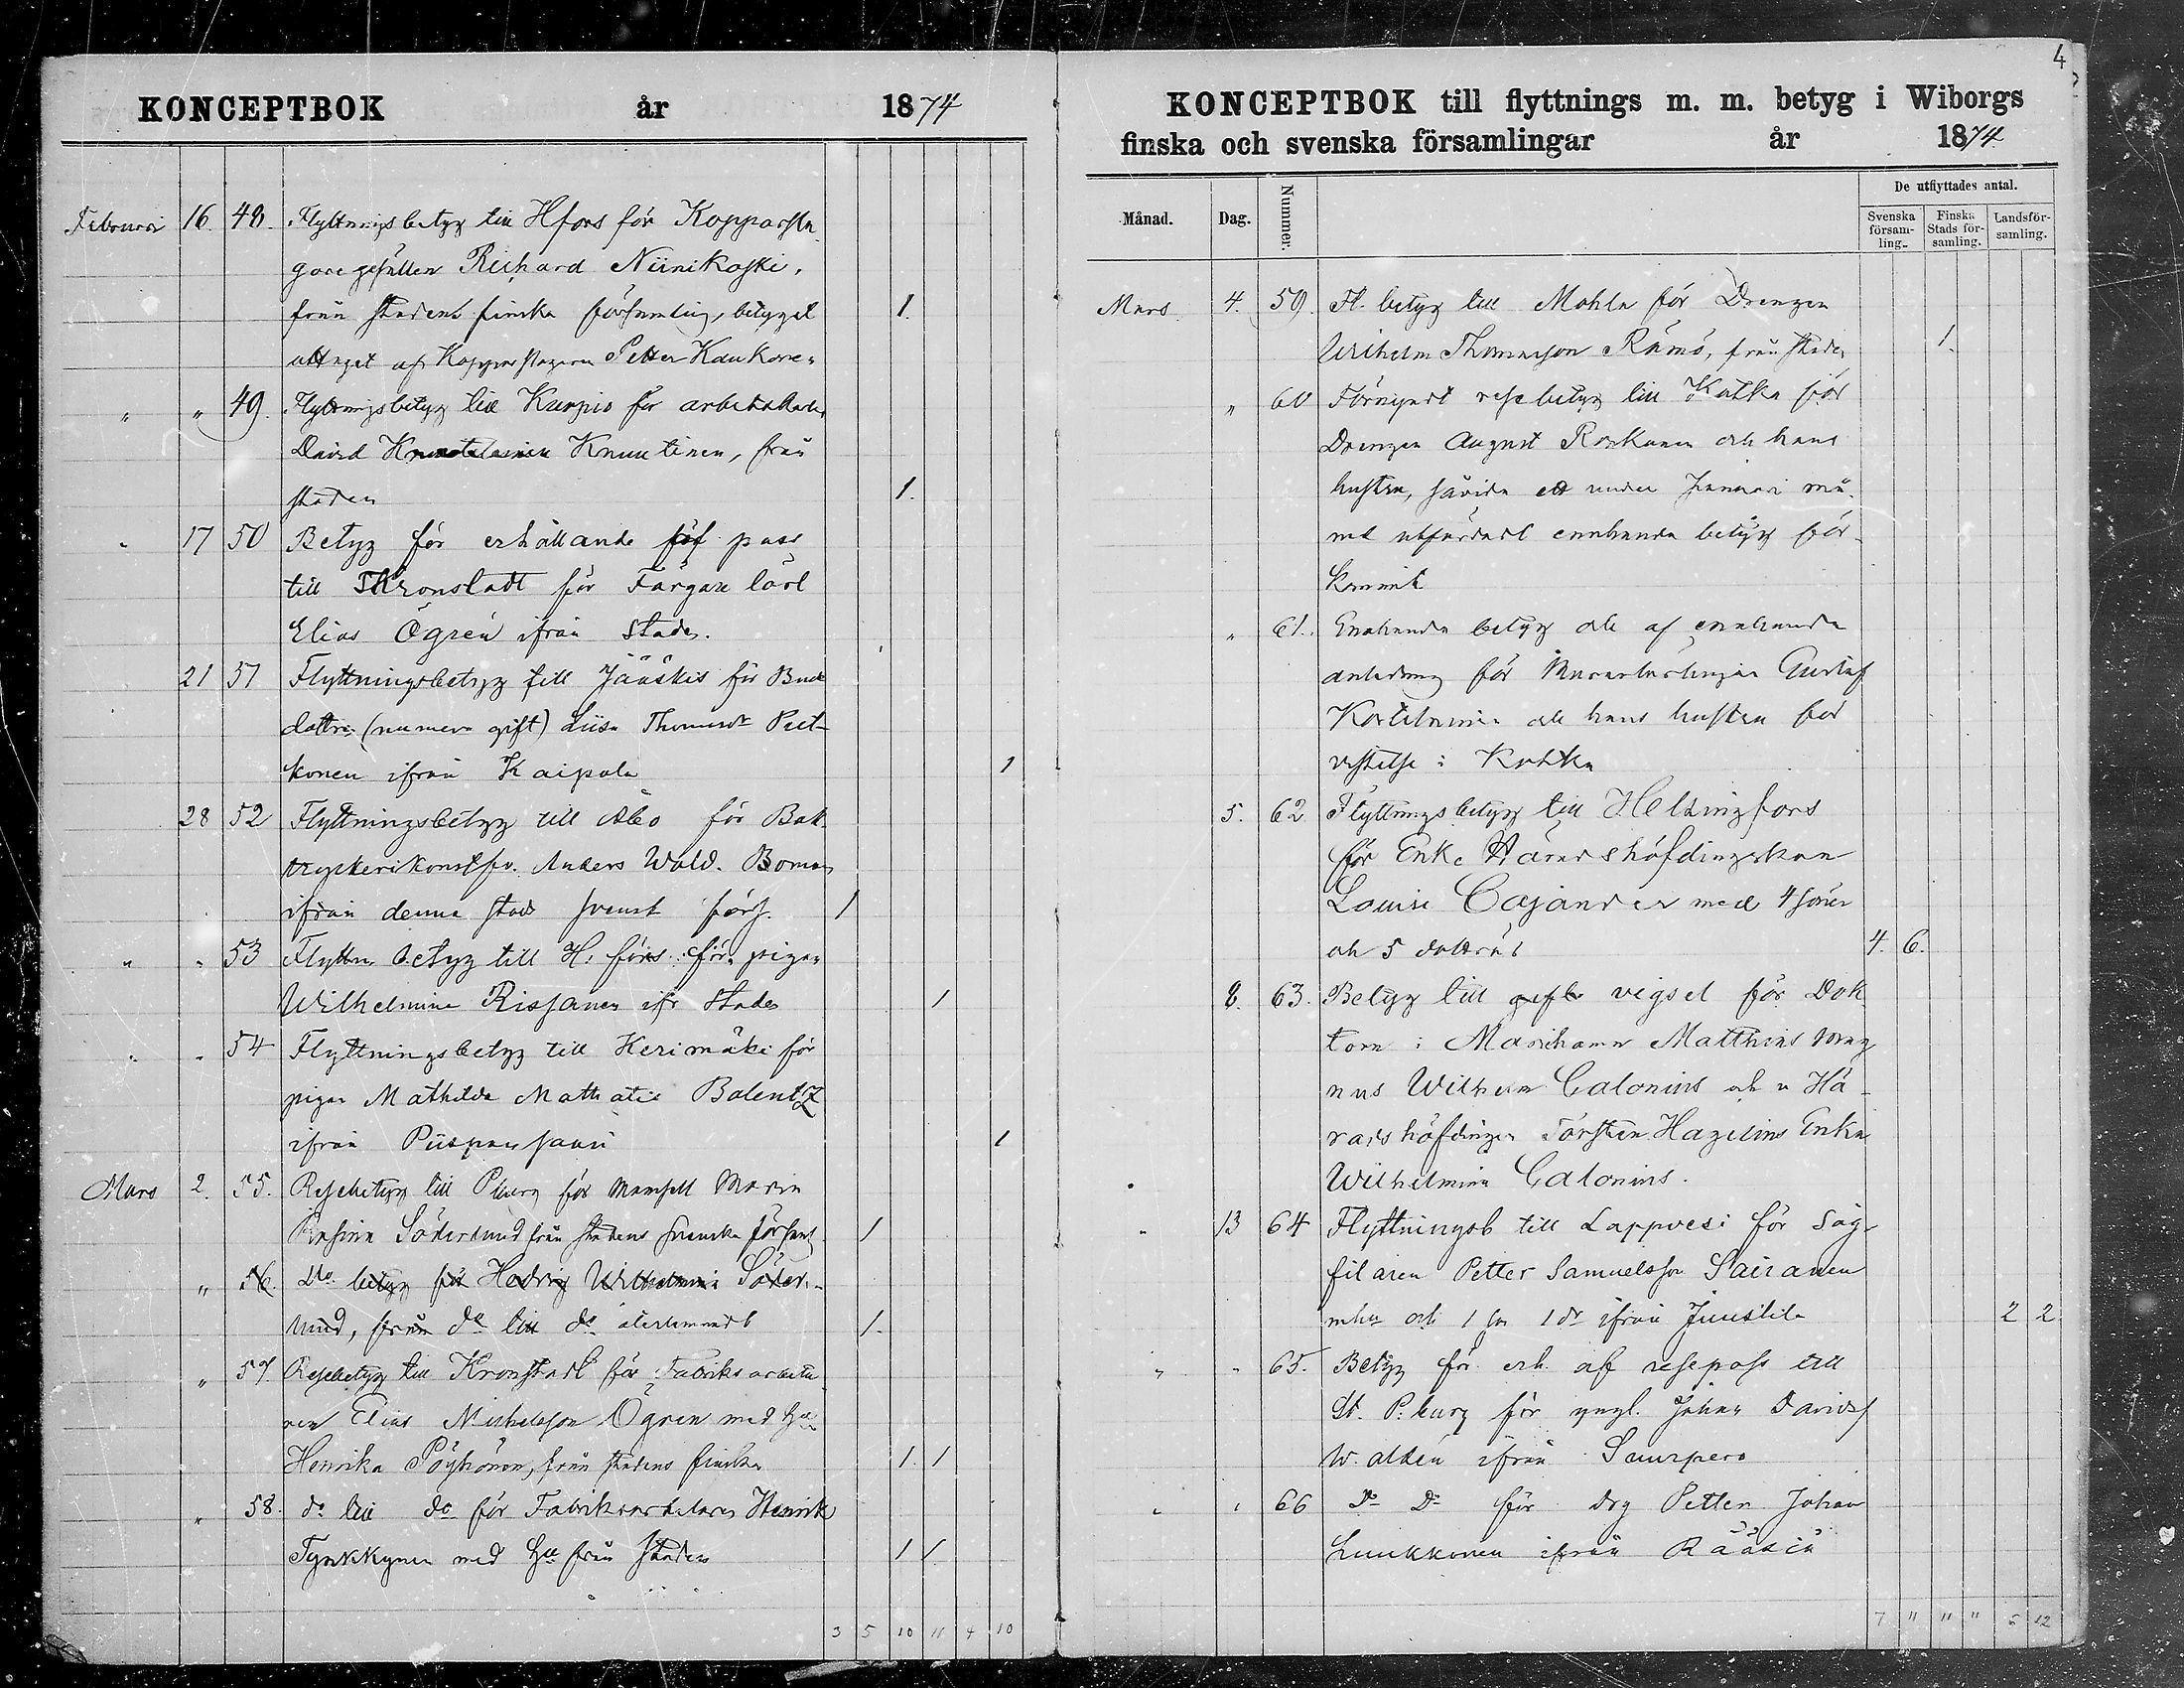 KONCEPTBOK år 1874
Februari 16. 48. Flyttningsbetyg till Hfors för Kopparsla
garegesällen Richard Niinikoski,
från stadens finska församling, betyget 1.
uttaget af Kopparslagaren Petter Kaukonen
" " 49. Flyttningsbetyg till Kuopio för arbetskarlen
David Knuutinen, från
staden 1.
" 17 50 Betyg för erhållande af pass
till Kronstadt för Färgare lärl
Elias Ögrén ifrån Staden.
21 51 Flyttningsbetyg till Jääskis för Bonde
dottren (numera gift) Liisa Thomasdr
konen ifrån Kaipola 1
28 52 Flyttningsbetyg till Åbo för Bok
tryckerikonstfv. Anders Wald. Boman
ifrån denna stads svensk förs. 1
" " 53 Flyttn. betyg till H. fors för pigan
Wilhelmina Rissanen ifr Staden 1
" " 54 Flyttningsbetyg till Kerimäki för
pigan Mathilda Balentz
ifrån Piispansaari 1
Mars 2. 55. Resebetyg till Pburg för Mamsell Maria
Rosina Söderlund från stadens svenska församl 1
" 56. Do betyg för Hedvig Wilhelmina Söder-
lund, från do till do återlemnadt 1.
" 57. Resebetyg till Kronstadt för Fabriksarbeta
ren Elias Michelsson Ögren med hu
Henrika Pöyhönen, från stadens finska 1. 1
" 58. do till do för Fabriksarbetaren Henrik
Tynkkynen med hu från Staden 1 1
3 5 10 11 4 10
4
KONCEPTBOK till flyttnings m. m. betyg i Wiborgs
finska och svenska församlingar år 1874
Månad. Dag. Nummer. De utflyttades antal.
Svenska församling. Finska Stads församling. Landsförsamling.
Mars 4. 59. Fl. betyg till Mohla för Drengen
Wilhelm Thomasson Rämö, från staden 1.
" 60 Förnyadt resebetyg till Kotka för
Drengen August Roskanen och hans
hustru, såvida ett under Januari må-
nad utfärdadt enahanda betyg för-
kommit
" 61. Enahanda betyg och af enahanda
anledning för Gustaf
och hans hustru för
vistelse i Kotka
5. 62 Flyttningsbetyg till Helsingfors
för Enke Häradshöfdingskan
Louise Cajander med 4 söner
och 5 döttrar 4. 6.
8. 63. Betyg till vigsel för Dok
torn i Mariehamn Matthias Mag
nus Wilhelm Calonius och Hä-
radshöfdingen Torsten Hazelius Enka
Wilhelmina Calonius.
" 13 64 Flyttningsb till Lappvesi för Såg-
filaren Petter Samuelsson Sairanen
mhu och 1 son 1 dr ifrån Juustila 2 2
" " 65. Betyg för erh. af resepass till
St. P:burg för yngl. Johan Davids
Waldén ifrån Suurpero
" " 66 Do Do för drg Petter Johan
Luukkonen ifrån Rääsiä
7 " " " 5 12